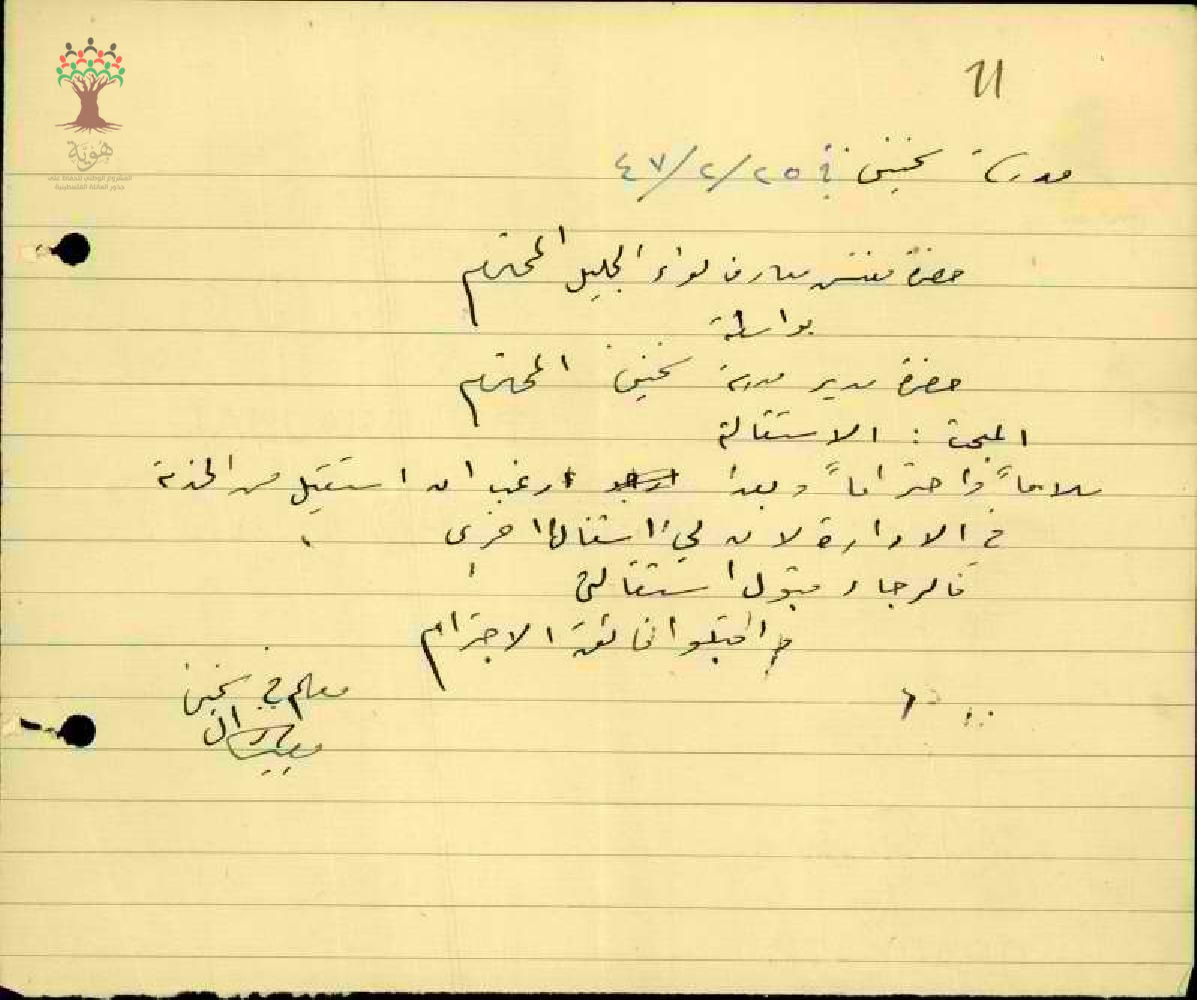 11
مدرسة سخنين في ٤٧/٢/٢٥
حضرة مفتش معارف لواء الجليل المحترم
بواسطة
حضرة مدير مدرسة سخنين المحترم
المبحث : الاستقالة
سلاماً واحتراماً وبعد ارغب ان استقيل من الخدمة
في الادارة لان لي اشغالا اخرى
فالرجاء قبول استقالتي
واقبلوا فائق الاحترام
معلم في سخنين
ميشال
هوية
المشروع الوطني للحفاظ على
جذور العائلة الفلسطينية